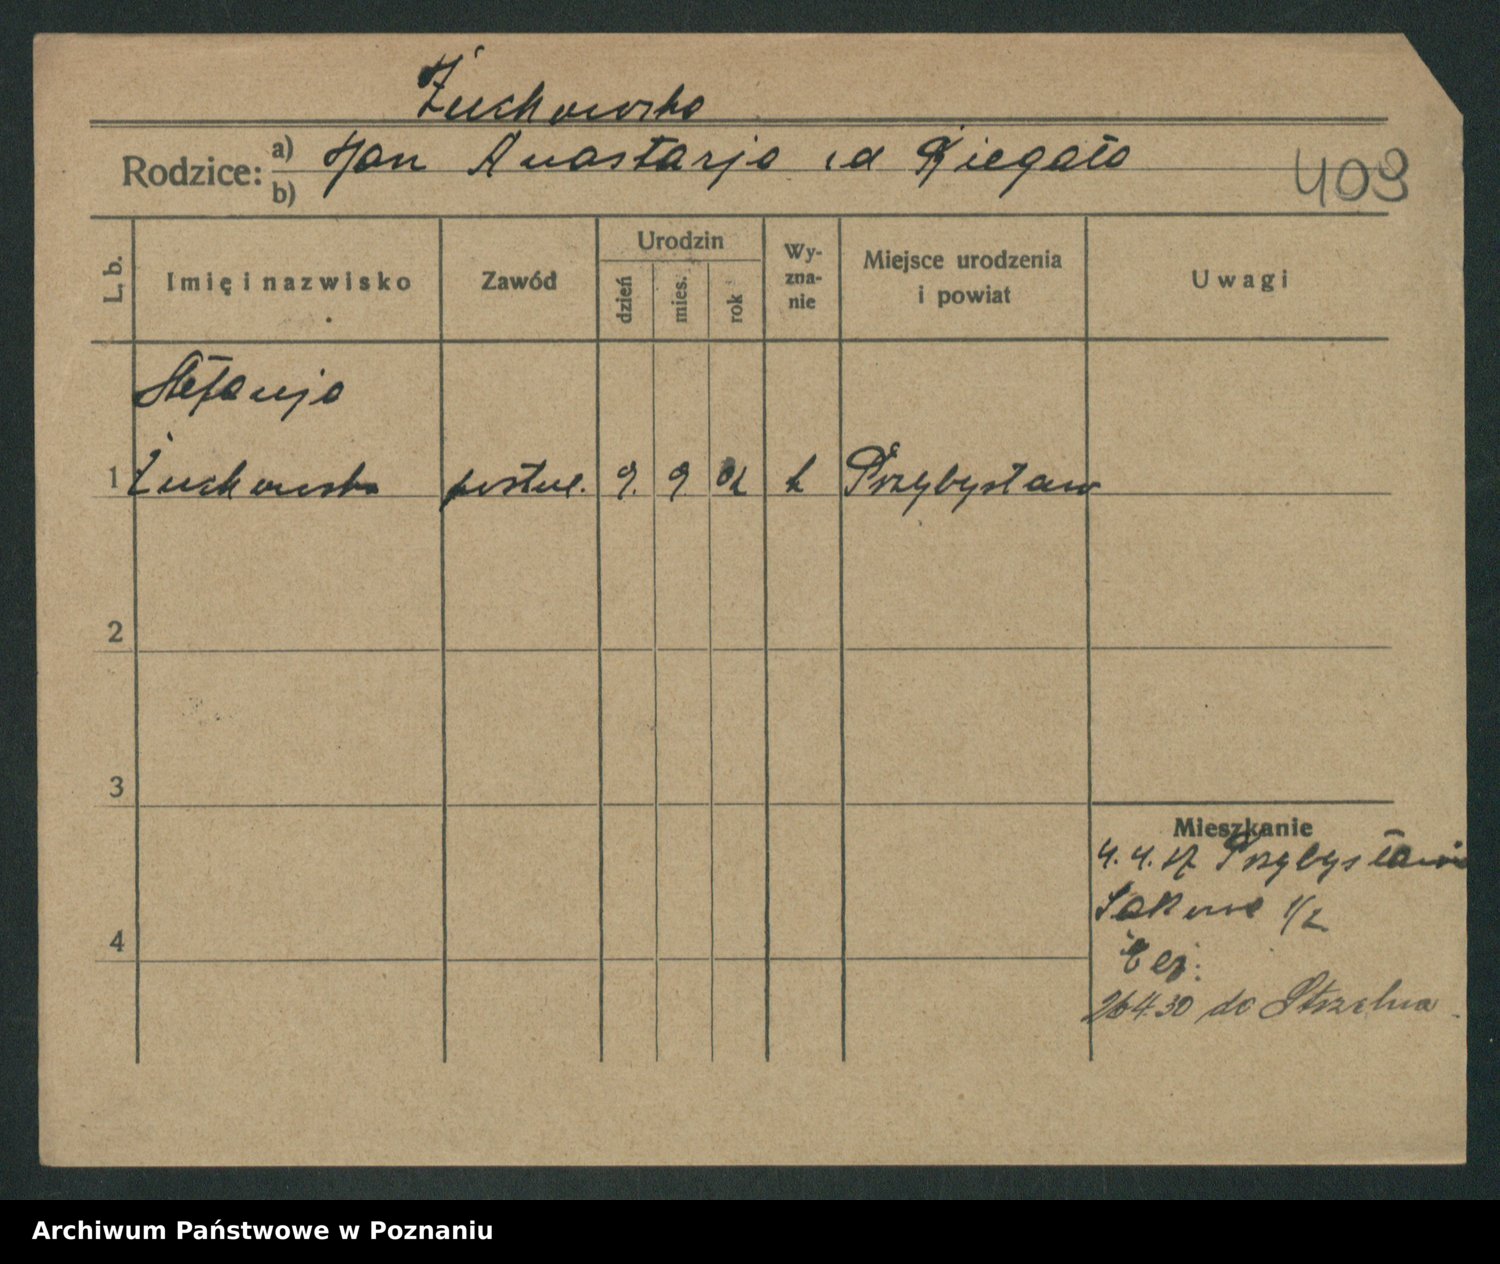 Żuchowska
Rodzice: a) Jan Anastazja
b)
409
L. b.
Imię i nazwisko
Zawód
Urodzin
dzień
mies.
rok
Wy-
zna-
nie
Miejsce urodzenia
i powiat
Uwagi
Stefanja
1 Żuchowska 9. 9. k Przybysław
2
3
4
Mieszkanie
4. 4. Przybysław
1/2
26 4. 30 do Strzelna
Archiwum Państwowe w Poznaniu